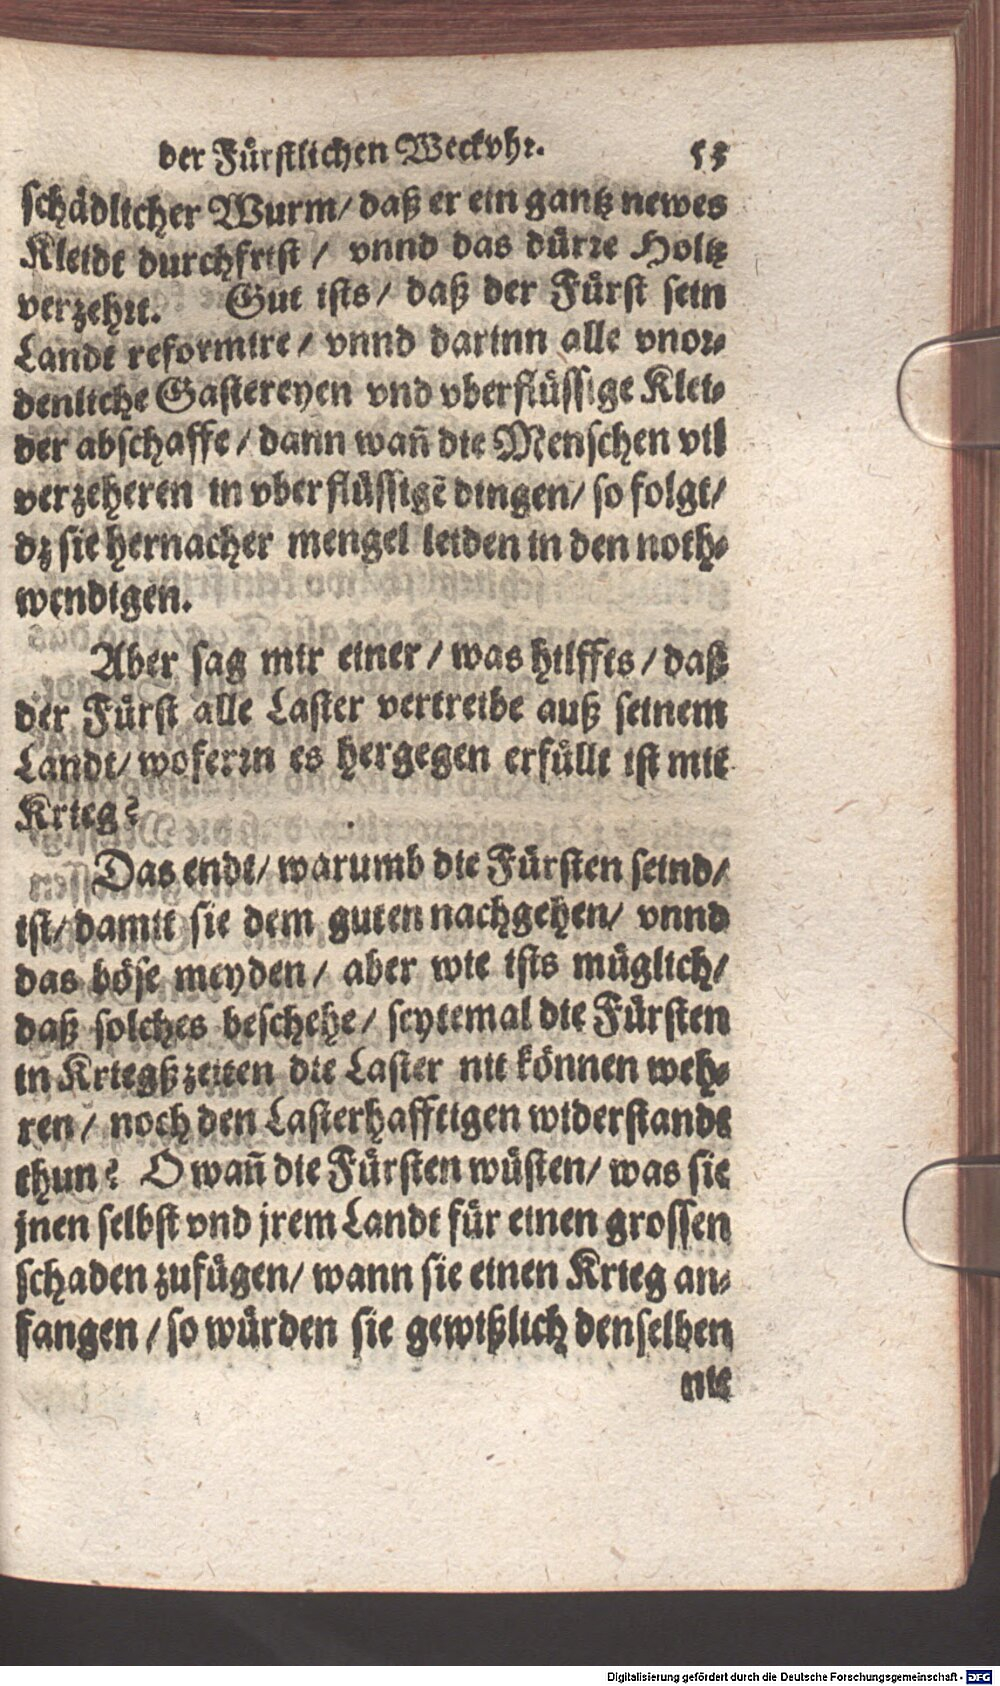 der Fürstlichen Weckvhr. 55
schädlicher Wurm/ daß er ein gantz newes
Kleidt durchfrist / vnnd das dürre Holtz
verzehrt. Gut ists/ daß der Fürst sein
Landt reformire / vnnd darinn alle vnor-
denliche Gastereyen vnd vberflüssige Klei-
der abschaffe / dann wañ die Menschen vil
verzeheren in vberflüssigẽ dingen/ so folgt/
dz sie hernacher mengel leiden in den noth-
wendigen.
Aber sag mir einer / was hilffts / daß
der Fürst alle Laster vertreibe auß seinem
Landt/ woferrn es hergegen erfüllt ist mit
Krieg?
Das endt/ warumb die Fürsten seind/
ist/ damit sie dem guten nachgehen/ vnnd
das böse meyden / aber wie ists müglich/
daß solches beschehe / seytemal die Fürsten
in Kriegßzeiten die Laster nit können weh-
ren / noch den Lasterhafftigen widerstandt
thun? O wañ die Fürsten wüsten/ was sie
jnen selbst vnd jrem Landt für einen grossen
schaden zufügen/ wann sie einen Krieg an-
fangen / so würden sie gewißlich denselben
nit
Digitalisierung gefördert durch die Deutsche Forschungsgemeinschaft - DFG